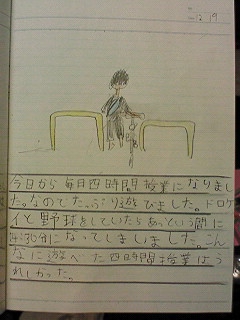 19
今日から毎月四時間授業になりまし
た。なのでたっぷり遊びました。ドロケ
イや野球をしていたらあっという間に
4:30分になってしまいました。こん
なに遊べた四時間授業はう
れしかった。